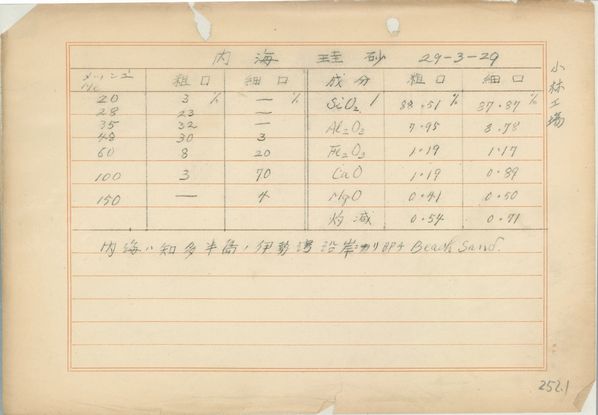 内海 珪砂 29-3-29
小林工場
メッシュ No. 粗口 細口 成分 粗口 細口
20 3 % — % SiO2 88.51 % 87.87 %
28 23 —
35 32 — Al2O3 7.95 8.78
48 30 3
60 8 20 Fe2O3 1.19 1.17
100 3 70 CaO 1.19 0.89
150 — 4 MgO 0.41 0.50
灼減 0.54 0.71
内海ハ知多半島ノ伊勢湾沿岸ナリ 即チ Beach Sand.
252.1